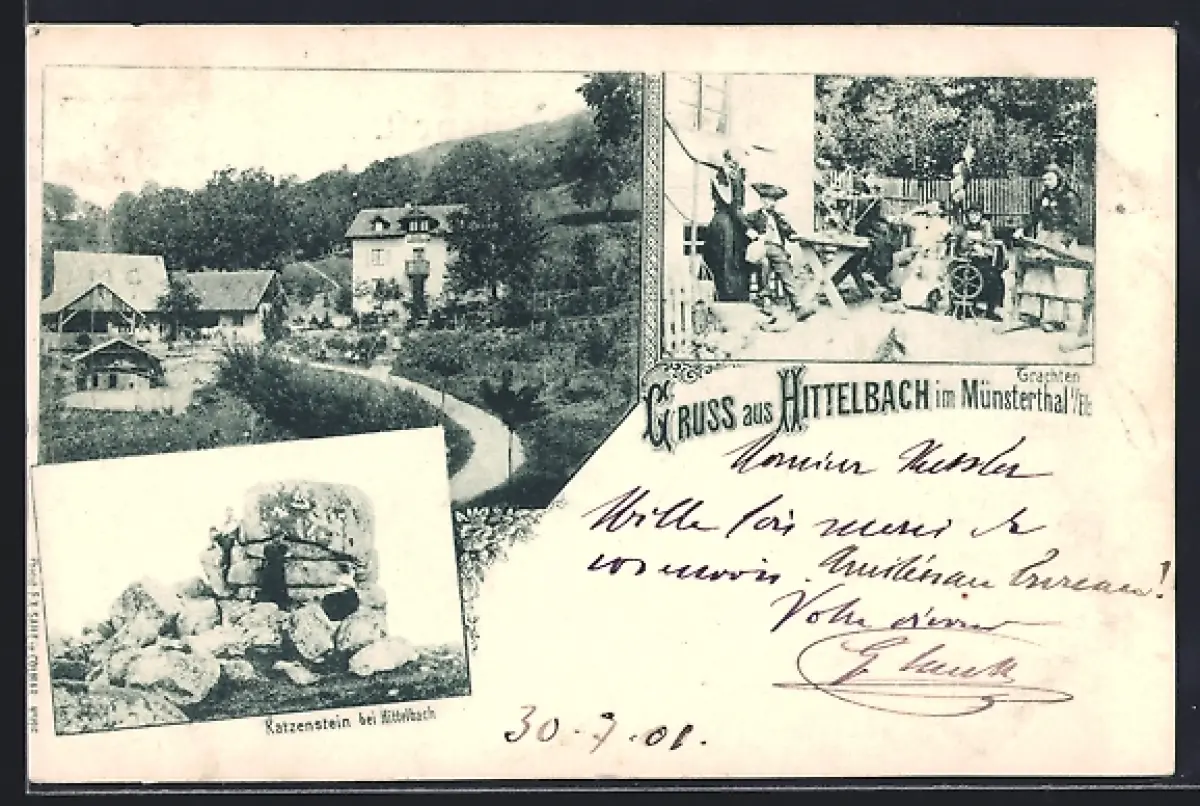 Trachten
GRUSS AUS HITTELBACH im Münsterthal i/Els
Monsieur Kessler
Mille fois merci de
vos envois. Amitiés au bureau!
Votre dévoué
30.7.01.
Katzenstein bei Hittelbach